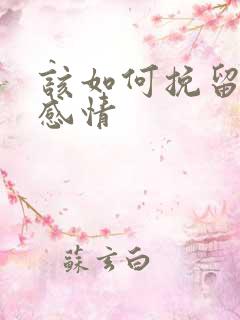 該如何挽留
感情
蘇玄白